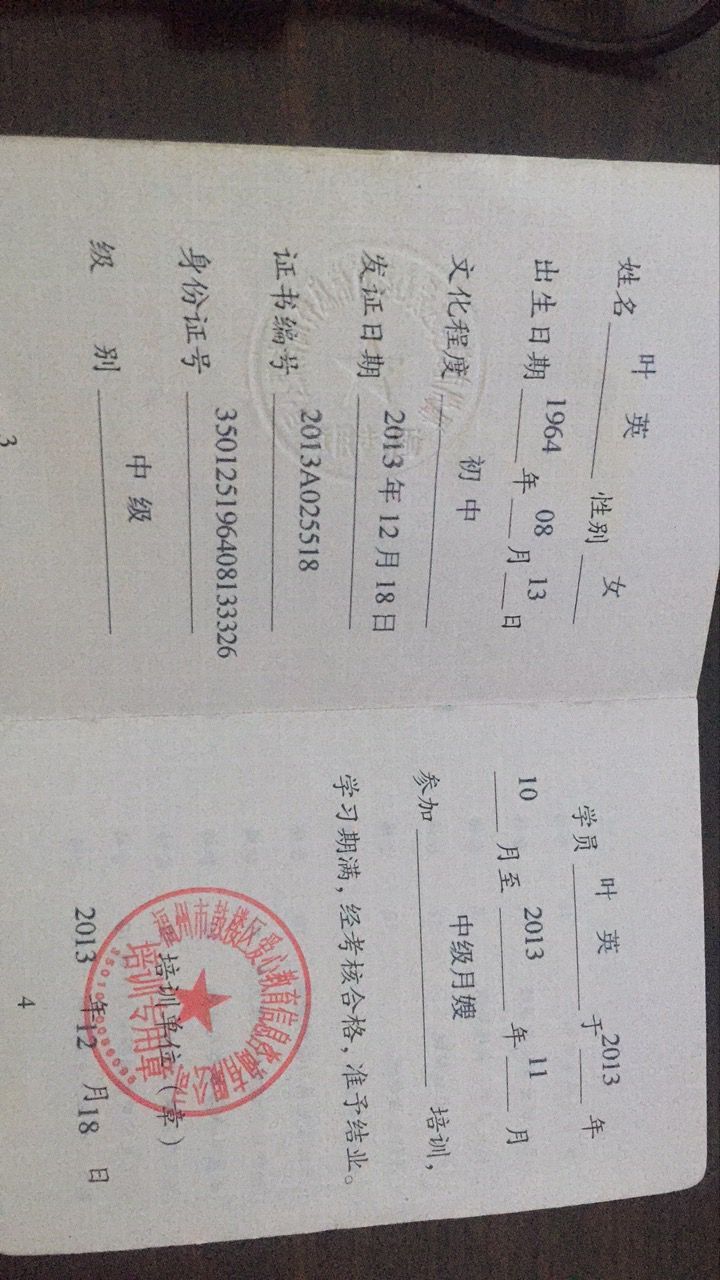 姓名 叶 英 性别 女
出生日期 1964 年 08 月 13 日
文化程度 初 中
发证日期 2013 年 12 月 18 日
证书编号 2013A025518
身份证号 350125196408133326
级 别 中 级
3
学员 叶 英 于 2013 年
10 月至 2013 年 11 月
参加 中级月嫂 培训,
学习期满,经考核合格,准予结业。
培训单位(章)
2013 年12 月18 日
福州市鼓楼区爱心教育信息咨询有限公司
培训专用章
4